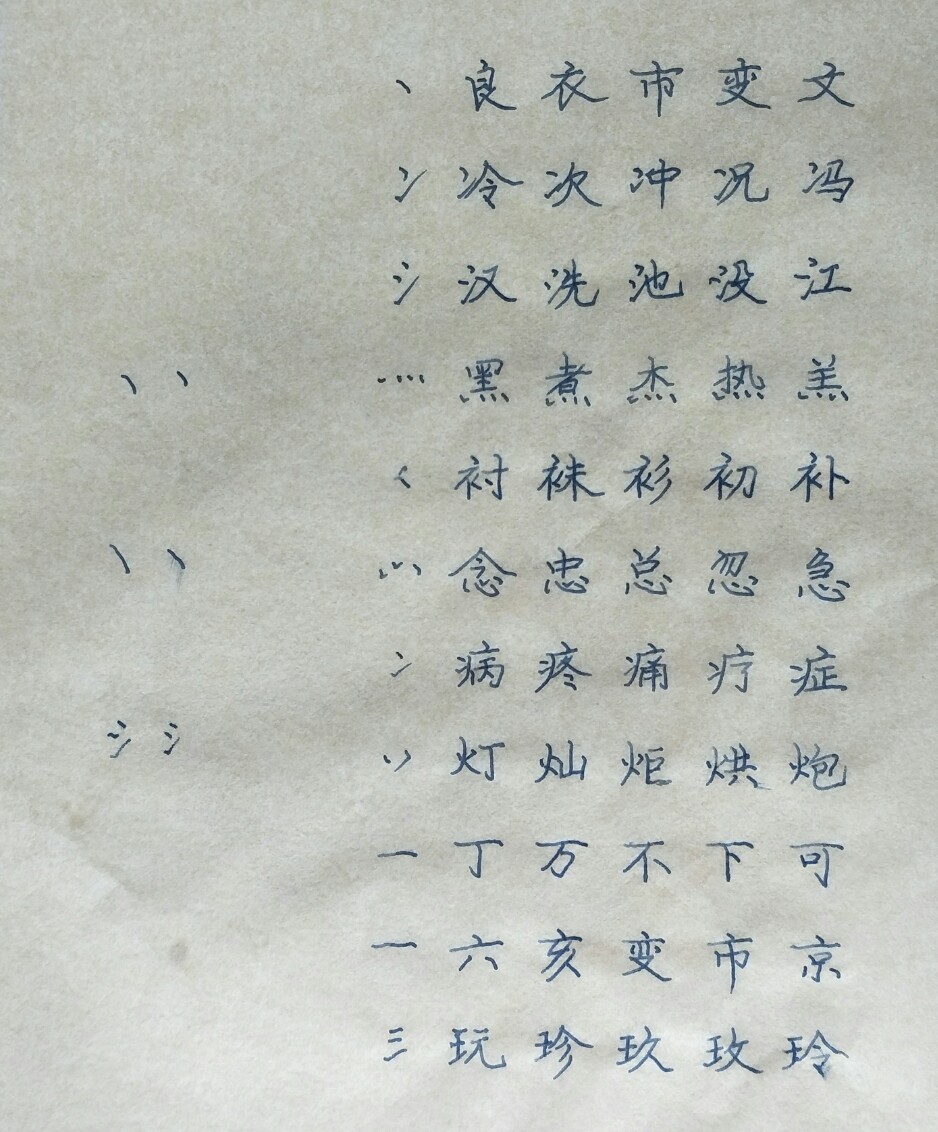 丶 良 衣 市 变 文
冫 冷 次 冲 况 冯
氵 汉 洗 池 没 江
丶 丶 灬 黑 煮 杰 热 羔
衬 袜 衫 初 补
丶 丶 念 忠 总 忽 急
冫 病 疼 痛 疗 症
氵 氵
灯 灿 炬 烘 炮
一 丁 万 不 下 可
一 六 亥 变 市 京
三 玩 珍 玖 玫 玲